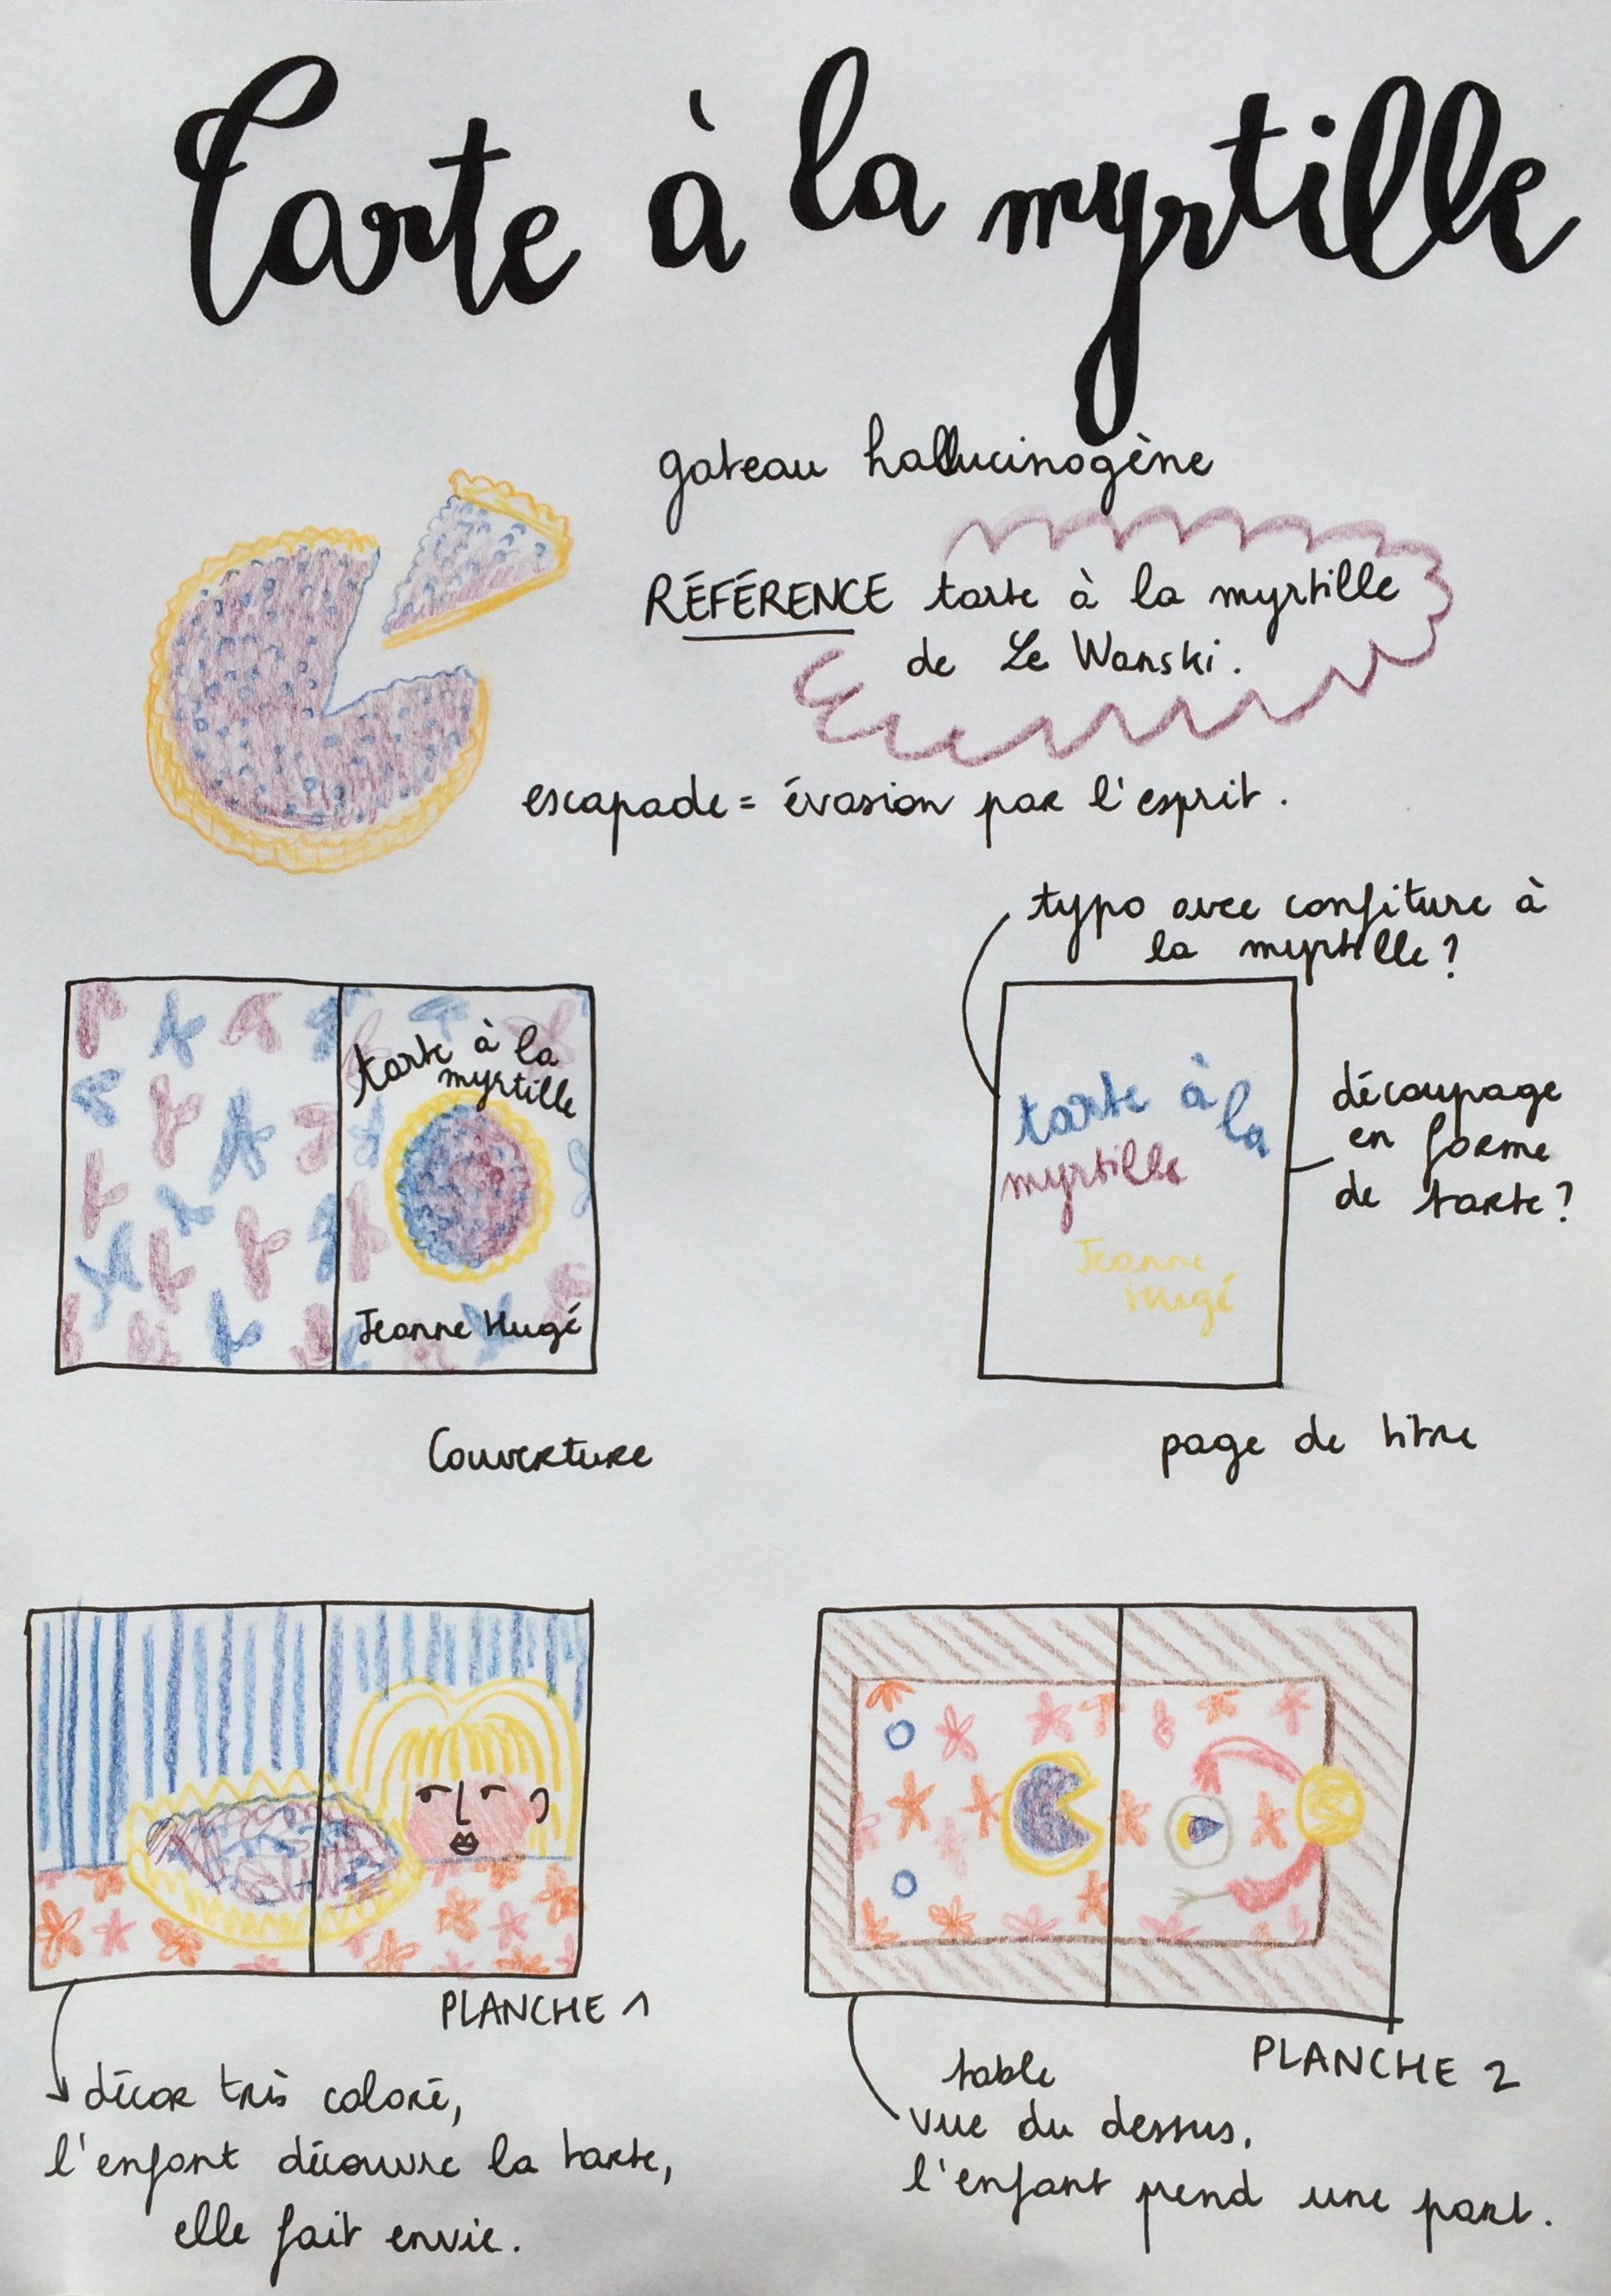 Tarte à la myrtille
gateau hallucinogène
RÉFÉRENCE tarte à la myrtille
de Le Wanski.
escapade = évasion par l'esprit.
typo avec confiture à
la myrtille ?
tarte à la
myrtille
Jeanne Hugé
Couverture
tarte à la
myrtille
Jeanne
Hugé
découpage
en forme
de tarte ?
page de titre
PLANCHE 1
décor très coloré,
l'enfant découvre la tarte,
elle fait envie.
PLANCHE 2
table
vue du dessus,
l'enfant prend une part.